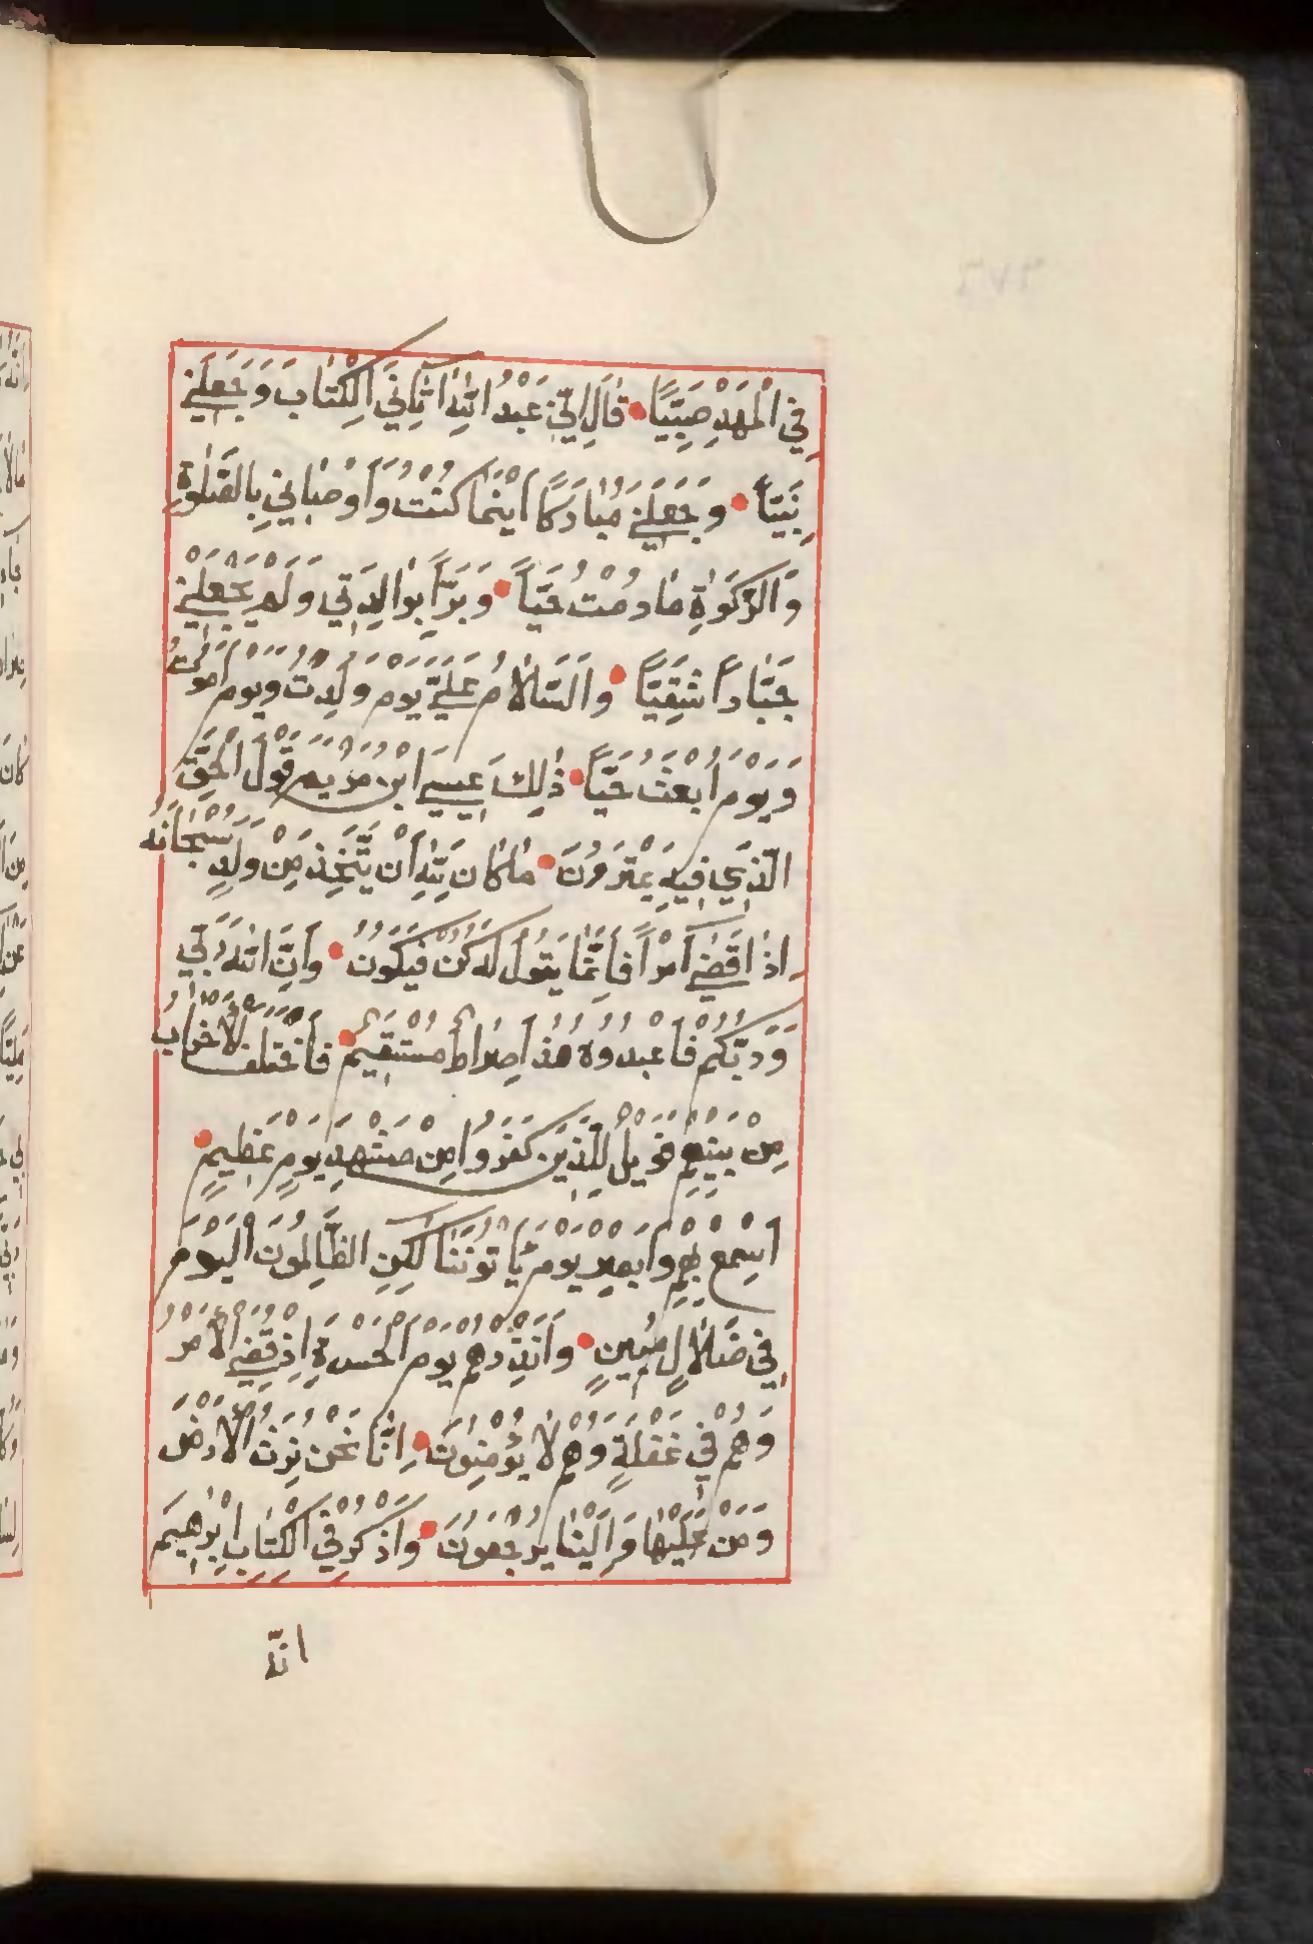 فِي الْمَهْدِ صَبِيًّا قَالَ اِنِّي عَبْدُ اللّٰهِ اٰتَانِيَ الْكِتَابَ وَجَعَلَنِي
نَبِيًّا وَجَعَلَنِي مُبَارَكًا اَيْنَمَا كُنْتُ وَاَوْصَانِي بِالصَّلٰوةِ
وَالزَّكٰوةِ مَا دُمْتُ حَيًّا وَبَرًّا بِوَالِدَتِي وَلَمْ يَجْعَلْنِي
جَبَّارًا شَقِيًّا وَالسَّلَامُ عَلَيَّ يَوْمَ وُلِدْتُ وَيَوْمَ اَمُوتُ
وَيَوْمَ اُبْعَثُ حَيًّا ذٰلِكَ عِيسَى ابْنُ مَرْيَمَ قَوْلَ الْحَقِّ
الَّذِي فِيهِ يَمْتَرُونَ مَا كَانَ لِلّٰهِ اَنْ يَتَّخِذَ مِنْ وَلَدٍ سُبْحَانَهُ
اِذَا قَضٰى اَمْرًا فَاِنَّمَا يَقُولُ لَهُ كُنْ فَيَكُونُ وَاِنَّ اللّٰهَ رَبِّي
وَرَبُّكُمْ فَاعْبُدُوهُ هٰذَا صِرَاطٌ مُسْتَقِيمٌ فَاخْتَلَفَ الْاَحْزَابُ
مِنْ بَيْنِهِمْ فَوَيْلٌ لِلَّذِينَ كَفَرُوا مِنْ مَشْهَدِ يَوْمٍ عَظِيمٍ
اَسْمِعْ بِهِمْ وَاَبْصِرْ يَوْمَ يَاْتُونَنَا لٰكِنِ الظَّالِمُونَ الْيَوْمَ
فِي ضَلَالٍ مُبِينٍ وَاَنْذِرْهُمْ يَوْمَ الْحَسْرَةِ اِذْ قُضِيَ الْاَمْرُ
وَهُمْ فِي غَفْلَةٍ وَهُمْ لَا يُؤْمِنُونَ اِنَّا نَحْنُ نَرِثُ الْاَرْضَ
وَمَنْ عَلَيْهَا وَاِلَيْنَا يُرْجَعُونَ وَاذْكُرْ فِي الْكِتَابِ اِبْرٰهِيمَ
انّه